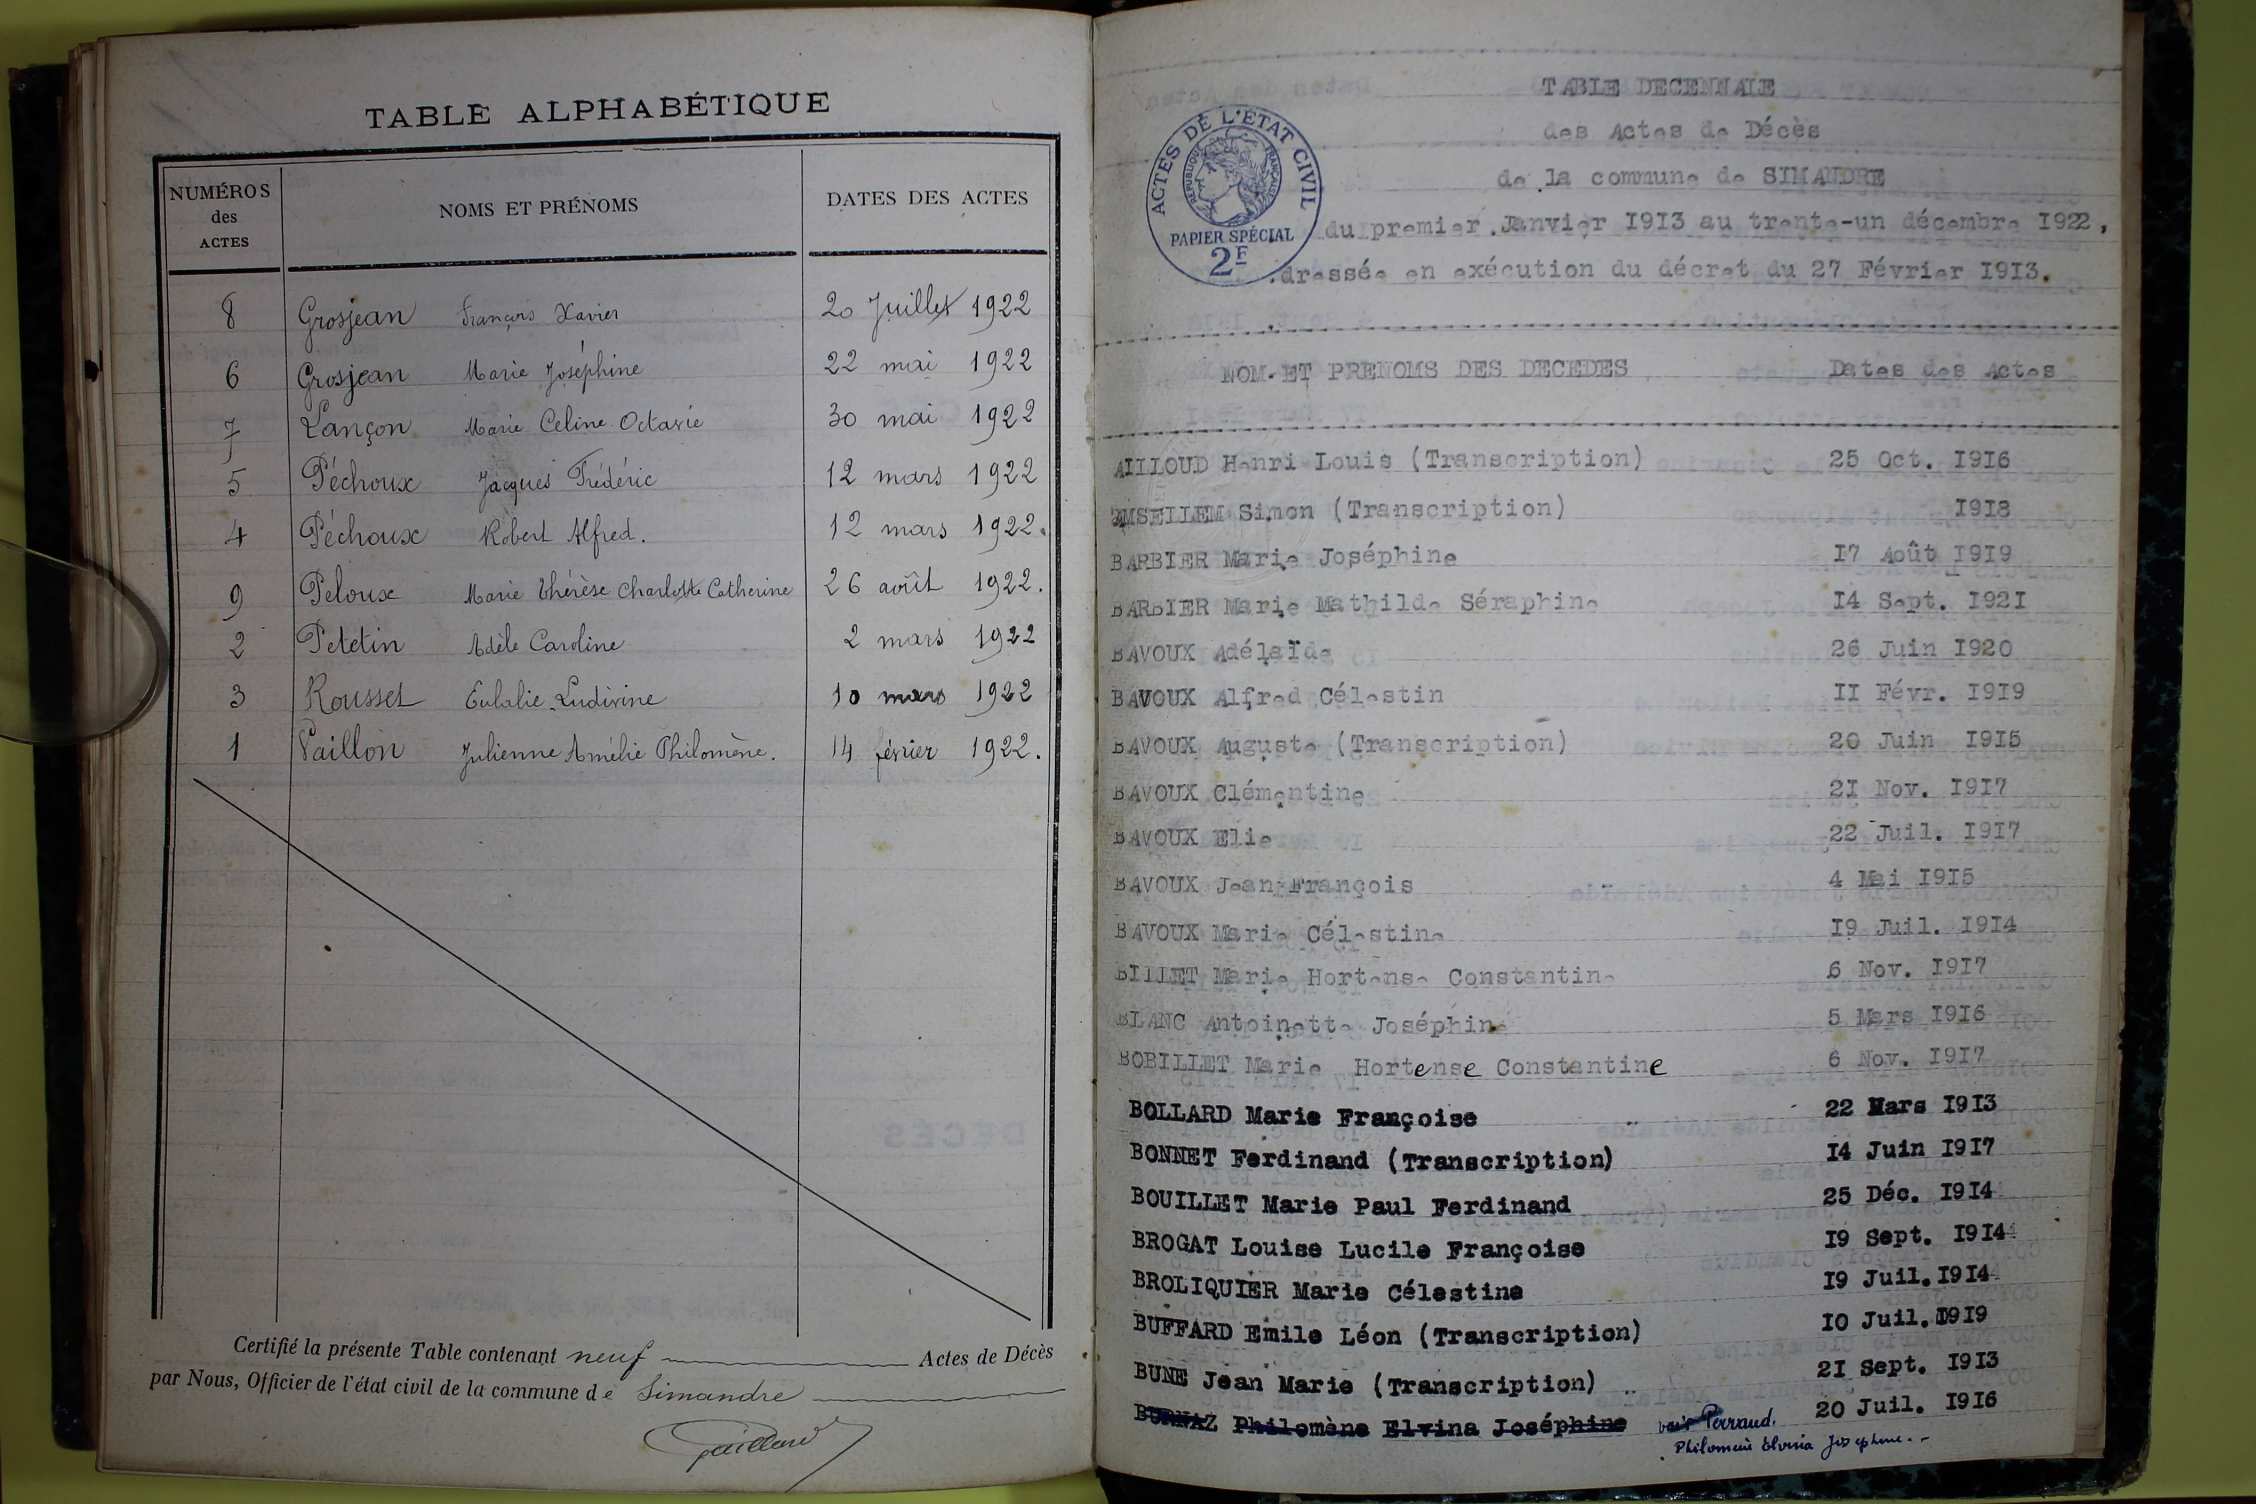 TABLE ALPHABÉTIQUE
NUMÉROS
des
ACTES
NOMS ET PRÉNOMS
DATES DES ACTES
8 Grosjean François Xavier 20 Juillet 1922
6 Grosjean Marie Joséphine 22 mai 1922
7 Lançon Marie Celine Octavie 30 mai 1922
5 Péchoux Jacques Frédéric 12 mars 1922
4 Péchoux Robert Alfred. 12 mars 1922.
9 Peloux Marie Thérèse Charlotte Catherine 26 août 1922.
2 Petetin Adèle Caroline 2 mars 1922
3 Rousset Eulalie Ludivine 10 mars 1922
1 Vaillon Julienne Amélie Philomène. 14 février 1922.
Certifié la présente Table contenant neuf Actes de Décès
par Nous, Officier de l'état civil de la commune de Simandre
TABLE DECENNALE
des Actes de Décès
de la commune de SIMANDRE
du premier Janvier 1913 au trente-un décembre 1922,
dressée en exécution du décret du 27 Février 1913.
ACTES DE L'ETAT CIVIL
REPUBLIQUE FRANÇAISE
PAPIER SPÉCIAL
2F
NOM ET PRENOMS DES DECEDES Dates des Actes
AILLOUD Henri Louis (Transcription) 25 Oct. 1916
AMSELLEM Simon (Transcription) 1918
BARBIER Marie Joséphine 17 Août 1919
BARBIER Marie Mathilde Séraphine 14 Sept. 1921
BAVOUX Adélaïde 26 Juin 1920
BAVOUX Alfred Célestin 11 Févr. 1919
BAVOUX Auguste (Transcription) 20 Juin 1915
BAVOUX Clémentine 21 Nov. 1917
BAVOUX Elie 22 Juil. 1917
BAVOUX Jean-François 4 Mai 1915
BAVOUX Marie Célestine 19 Juil. 1914
BILLET Marie Hortense Constantine 6 Nov. 1917
BLANC Antoinette Joséphine 5 Mars 1916
BOBILLET Marie Hortense Constantine 6 Nov. 1917
BOLLARD Marie Françoise 22 Mars 1913
BONNET Ferdinand (Transcription) 14 Juin 1917
BOUILLET Marie Paul Ferdinand 25 Déc. 1914
BROGAT Louise Lucile Françoise 19 Sept. 1914
BROLIQUIER Marie Célestine 19 Juil. 1914
BUFFARD Emile Léon (Transcription) 10 Juil. 1919
BUNE Jean Marie (Transcription) 21 Sept. 1913
BURNAZ Philomène Elvina Joséphine voir Perraud. 20 Juil. 1916
Philomène Elvina Josephine.-